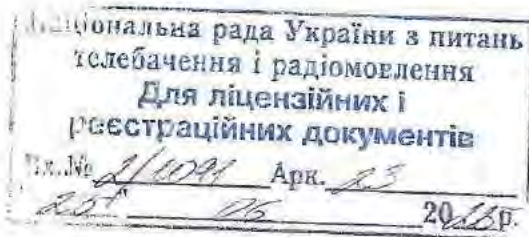 Національна рада України з питань
телебачення і радіомовлення
Для ліцензійних і
реєстраційних документів
Вх.№ 2/1091 Арк. 23
25 06 20 р.